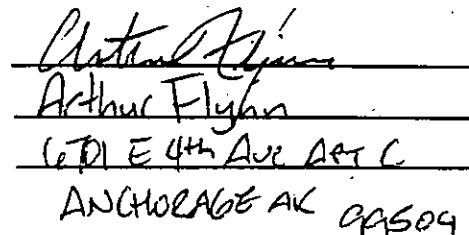 Arthur Flynn
Arthur Flynn
6701 E 4th Ave Apt C
ANCHORAGE AK 99504